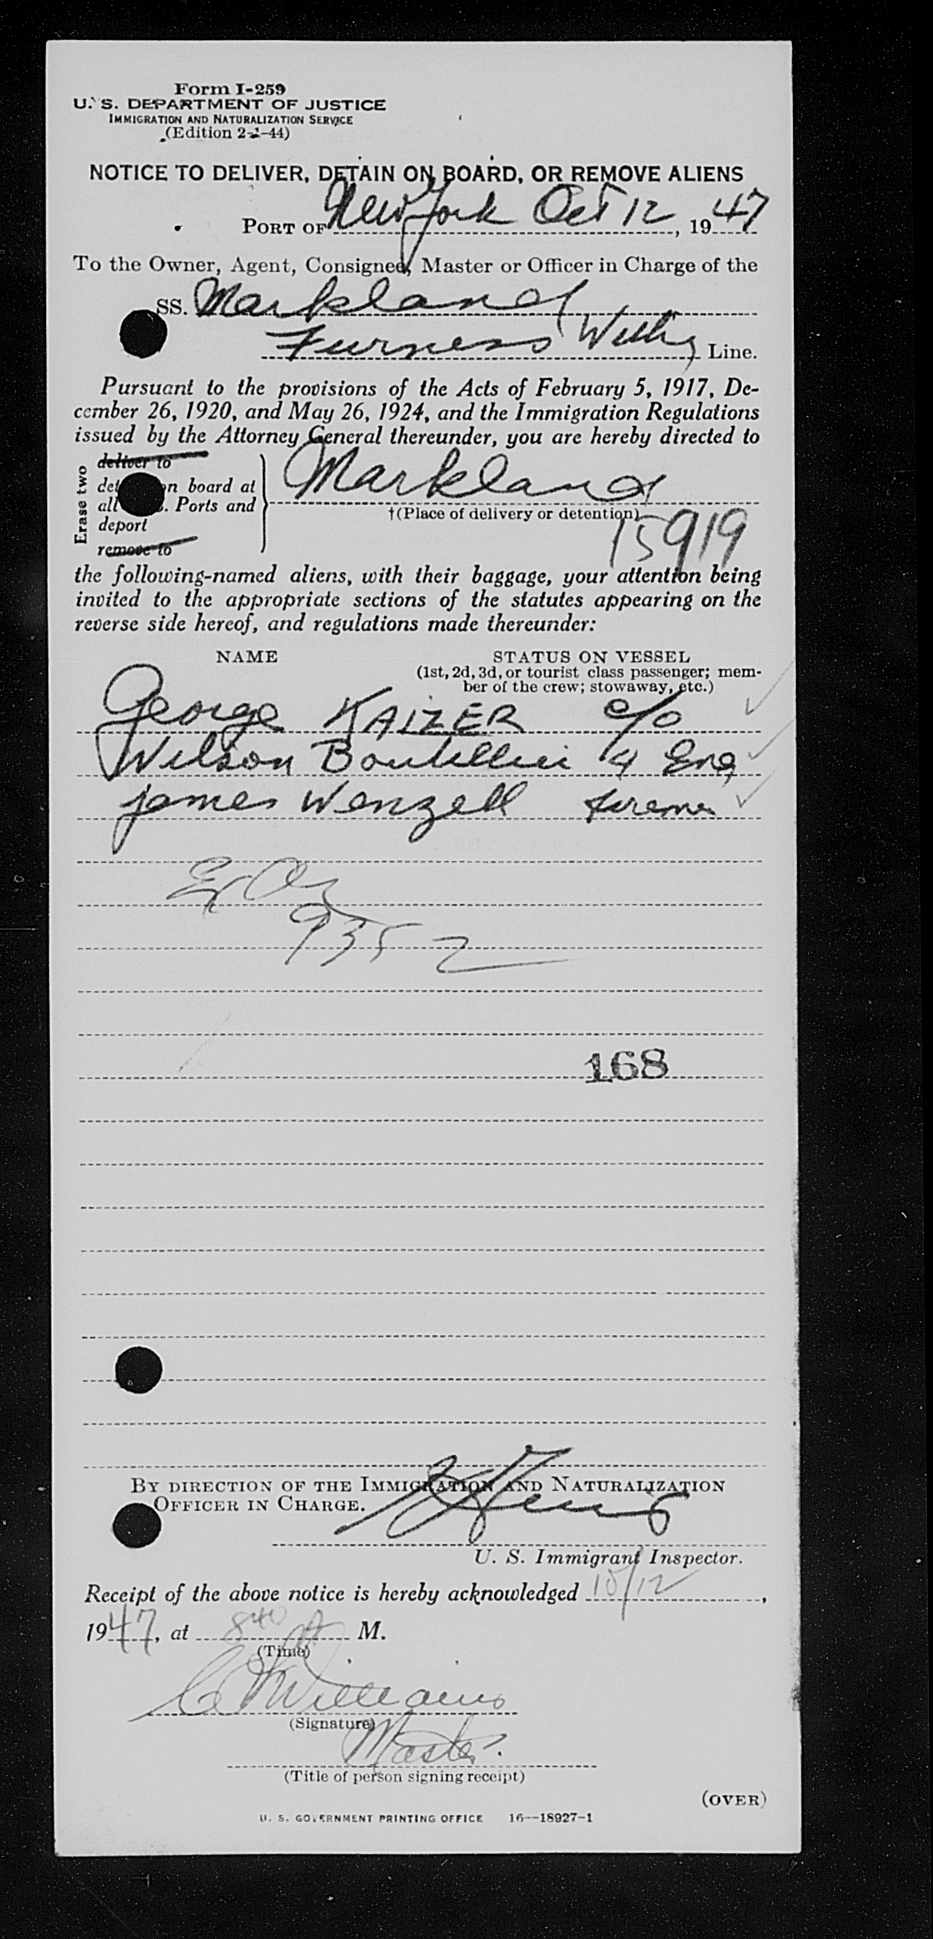 Form I-259
U. S. DEPARTMENT OF JUSTICE
IMMIGRATION AND NATURALIZATION SERVICE
(Edition 2-1-44)
NOTICE TO DELIVER, DETAIN ON BOARD, OR REMOVE ALIENS
PORT OF New York Oct 12, 1947
To the Owner, Agent, Consignee, Master or Officer in Charge of the
SS. Markland
Furness Withy Line.
Pursuant to the provisions of the Acts of February 5, 1917, De-
cember 26, 1920, and May 26, 1924, and the Immigration Regulations
issued by the Attorney General thereunder, you are hereby directed to
Erase two
deliver to
on board at
all Ports and
deport
remove to
Markland
†(Place of delivery or detention)
15919
the following-named aliens, with their baggage, your attention being
invited to the appropriate sections of the statutes appearing on the
reverse side hereof, and regulations made thereunder:
NAME STATUS ON VESSEL
(1st, 2d, 3d, or tourist class passenger; mem-
ber of the crew; stowaway, etc.)
George KAIZER c/o
Wilson Boutillier 4 Eng
James Wenzell fireman
9352
168
BY DIRECTION OF THE IMMIGRATION AND NATURALIZATION
OFFICER IN CHARGE.
U. S. Immigrant Inspector.
Receipt of the above notice is hereby acknowledged 10/12,
1947, at 840 A M.
(Time)
Williams
(Signature)
Master.
(Title of person signing receipt)
(OVER)
U. S. GOVERNMENT PRINTING OFFICE 16—18927-1